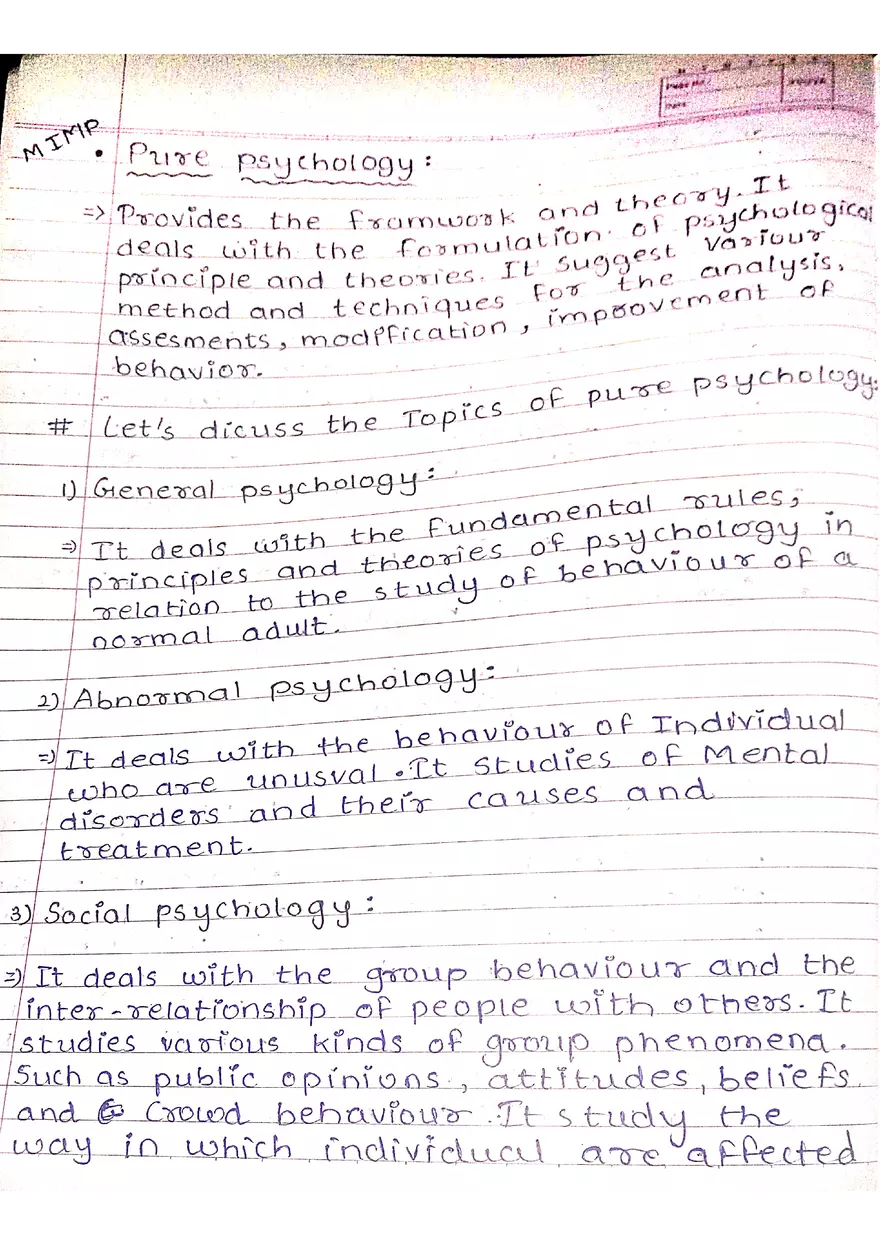 MIMP
• Pure psychology :
=> Provides the framwork and theory. It
deals with the formulation. of psychological
principle and theories. It suggest variour
method and techniques for the analysis,
assesments, modification, improovement of
behavior.
# Let's dicuss the Topics of pure psychology:
1) General psychology:
=> It deals with the fundamental rules,
principles and theories of psychology in
relation to the study of behaviour of a
normal adult.
2) Abnormal psychology:
=> It deals with the behaviour of Individual
who are unusval. It studies of Mental
disorders and their causes and
treatment.
3) Social psychology:
=> It deals with the group behaviour and the
inter-relationship of people with others. It
studies various kinds of group phenomena.
Such as public opinions, attitudes, beliefs
and Crowd behaviour. It study the
way in which individual are affected